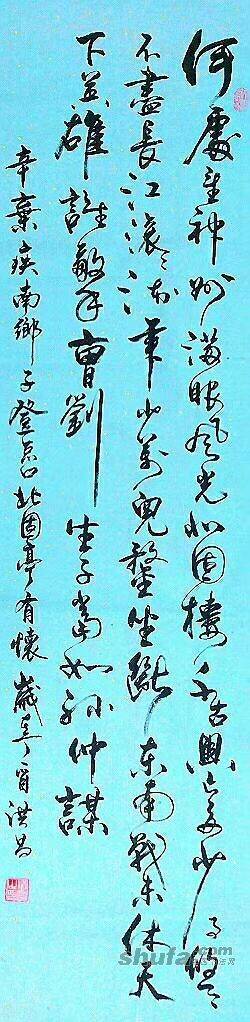 何處望神州滿眼风光北固樓千古興亡多少事悠々
不盡長江滾々流年少萬兜鍪坐斷东南戰未休天
下英雄誰敵手曹劉生子當如孫仲謀
辛棄疾南鄉子登京口北固亭有懷歲洪昌
shufa